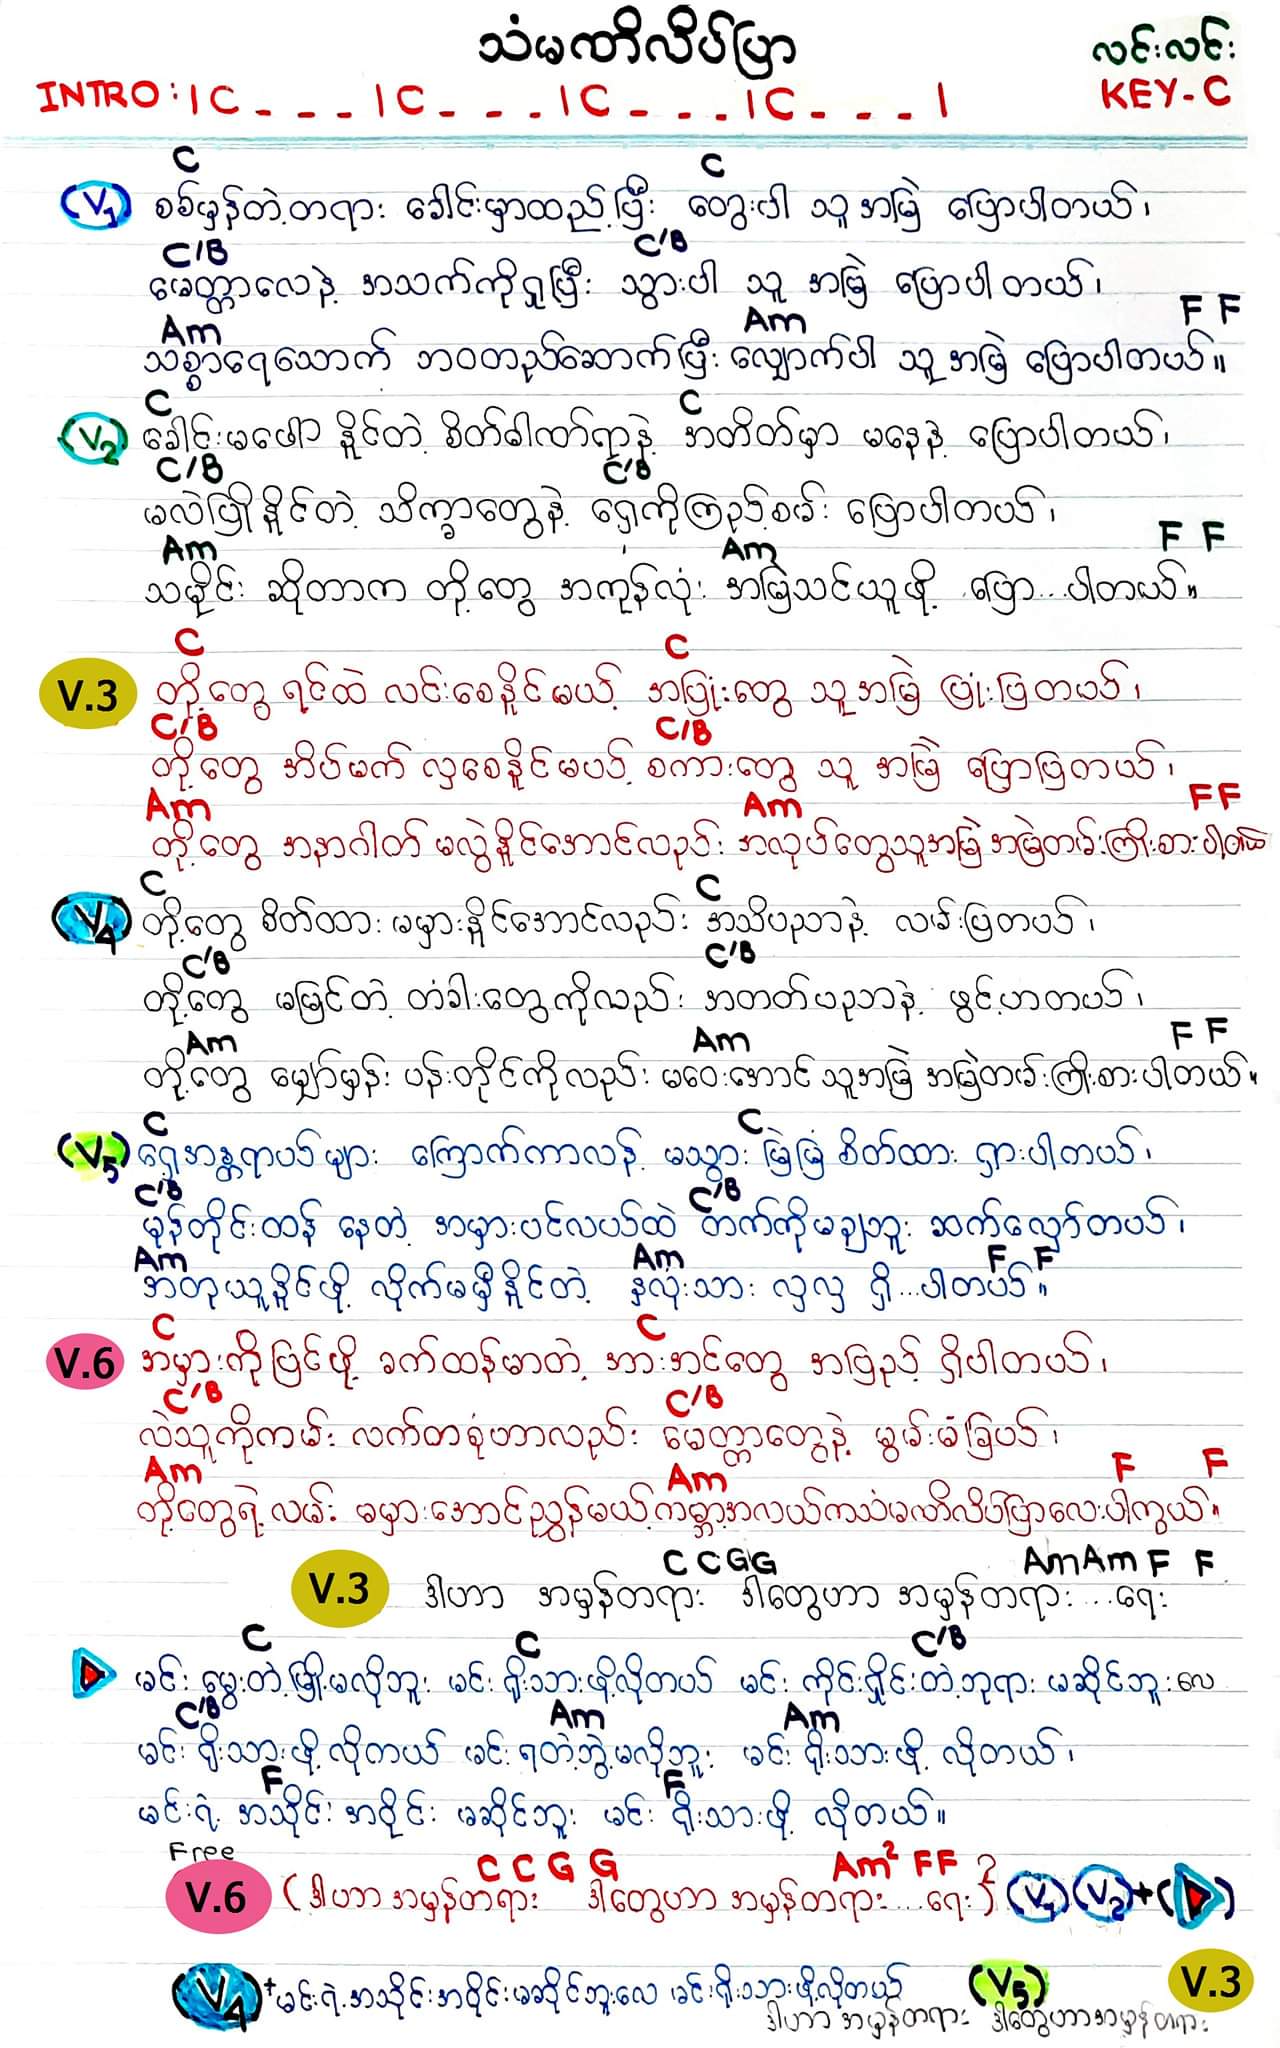 သံမဏိလိပ်ပြာ
လင်းလင်း
INTRO: | C - - - | C - - - | C - - - | C - - - |
KEY-C
C C
(V1) စစ်မှန်တဲ့တရား ခေါင်းမှာထည့်ပြီး တွေးပါ သူအမြဲ ပြောပါတယ်၊
C/B C/B
မေတ္တာလေနဲ့ အသက်ကိုရှူပြီး သွားပါ သူ အမြဲ ပြောပါတယ်၊
Am Am F F
သစ္စာရေသောက် ဘဝတည်ဆောက်ပြီး လျှောက်ပါ သူအမြဲ ပြောပါတယ်။
C C
(V2) ခေါင်းမဖော် နိူင်တဲ့ စိတ်ဓါဏ်ရာနဲ့ အတိတ်မှာ မနေနဲ့ ပြောပါတယ်၊
C/B C/B
မလဲပြိုနိူင်တဲ့ သိက္ခာတွေနဲ့ ရှေ့ကိုကြည့်စမ်း ပြောပါတယ်၊
Am Am F F
သမိုင်း ဆိုတာက တို့တွေ အကုန်လုံး အမြဲသင်ယူဖို့ ပြော...ပါတယ်။
C C
V.3 တို့တွေ ရင်ထဲ လင်းစေနိူင်မယ့် အပြုံးတွေ သူအမြဲ ပြုံးပြတယ်၊
C/B C/B
တို့တွေ အိပ်မက် လှစေနိူင်မယ့် စကားတွေ သူ အမြဲ ပြောပြတယ်၊
Am Am F F
တို့တွေ အနာဂါတ် မလွဲနိူင်အောင်လည်း အလုပ်တွေသူအမြဲ အမြဲတမ်းကြိုးစားပါတယ်
C C
V4 တို့တွေ စိတ်ထား မမှားနိူင်အောင်လည်း အသိပညာနဲ့ လမ်းပြတယ်၊
C/B C/B
တို့တွေ မမြင်တဲ့ တံခါးတွေကိုလည်း အတတ်ပညာနဲ့ ဖွင့်ဟတယ်၊
Am Am F F
တို့တွေ မျှော်မှန်း ပန်းတိုင်ကိုလည်း မဝေးအောင် သူအမြဲ အမြဲတမ်းကြိုးစားပါတယ်။
C C
(V5) ရှေ့အန္တရာယ်များ ကြောက်ကာလန့် မသွား မြဲမြံ စိတ်ထား ရှားပါတယ်၊
C/B C/B
မုန်တိုင်းထန် နေတဲ့ အမှားပင်လယ်ထဲ တက်ကိုမချဘူး ဆက်လှော်တယ်၊
Am Am F F
အတုယူနိူင်ဖို့ လိုက်မမှီနိူင်တဲ့ နှလုံးသား လှလှ ရှိ...ပါတယ်။
C C
V.6 အမှားကိုပြင်ဖို့ ခက်ထန်မာတဲ့ အားအင်တွေ အပြည့် ရှိပါတယ်၊
C/B C/B
လဲသူကိုကမ်း လက်တစုံဟာလည်း မေတ္တာတွေနဲ့ မွှမ်းမံခြယ်၊
Am Am F F
တို့တွေရဲ့လမ်း မမှားအောင်ညွှန်မယ့်ကမ္ဘာ့အလယ်ကသံမဏိလိပ်ပြာလေးပါကွယ်။
C C G G Am Am F F
V.3 ဒါဟာ အမှန်တရား ဒါတွေဟာ အမှန်တရား...ရေး
C C C/B
မင်း မွေးတဲ့မြို့မလိုဘူး မင်း ရိုးသားဖို့လိုတယ် မင်း ကိုင်းရှိုင်းတဲ့ဘုရား မဆိုင်ဘူးလေ
C/B Am Am
မင်း ရိုးသားဖို့ လိုတယ် မင်း ရတဲ့ဘွဲ့မလိုဘူး မင်း ရိုးသားဖို့ လိုတယ်၊
F F
မင်းရဲ့ အသိုင်း အဝိုင်း မဆိုင်ဘူး မင်း ရိုးသားဖို့ လိုတယ်။
Free
C C G G Am² F F 2
V.6 (ဒါဟာ အမှန်တရား ဒါတွေဟာ အမှန်တရား...ရေး) (V1) (V2) + ( )
V4 + မင်းရဲ့အသိုင်းအဝိုင်းမဆိုင်ဘူးလေ မင်းရိုးသားဖို့လိုတယ် (V5) V.3
ဒါဟာ အမှန်တရား ဒါတွေဟာအမှန်တရား